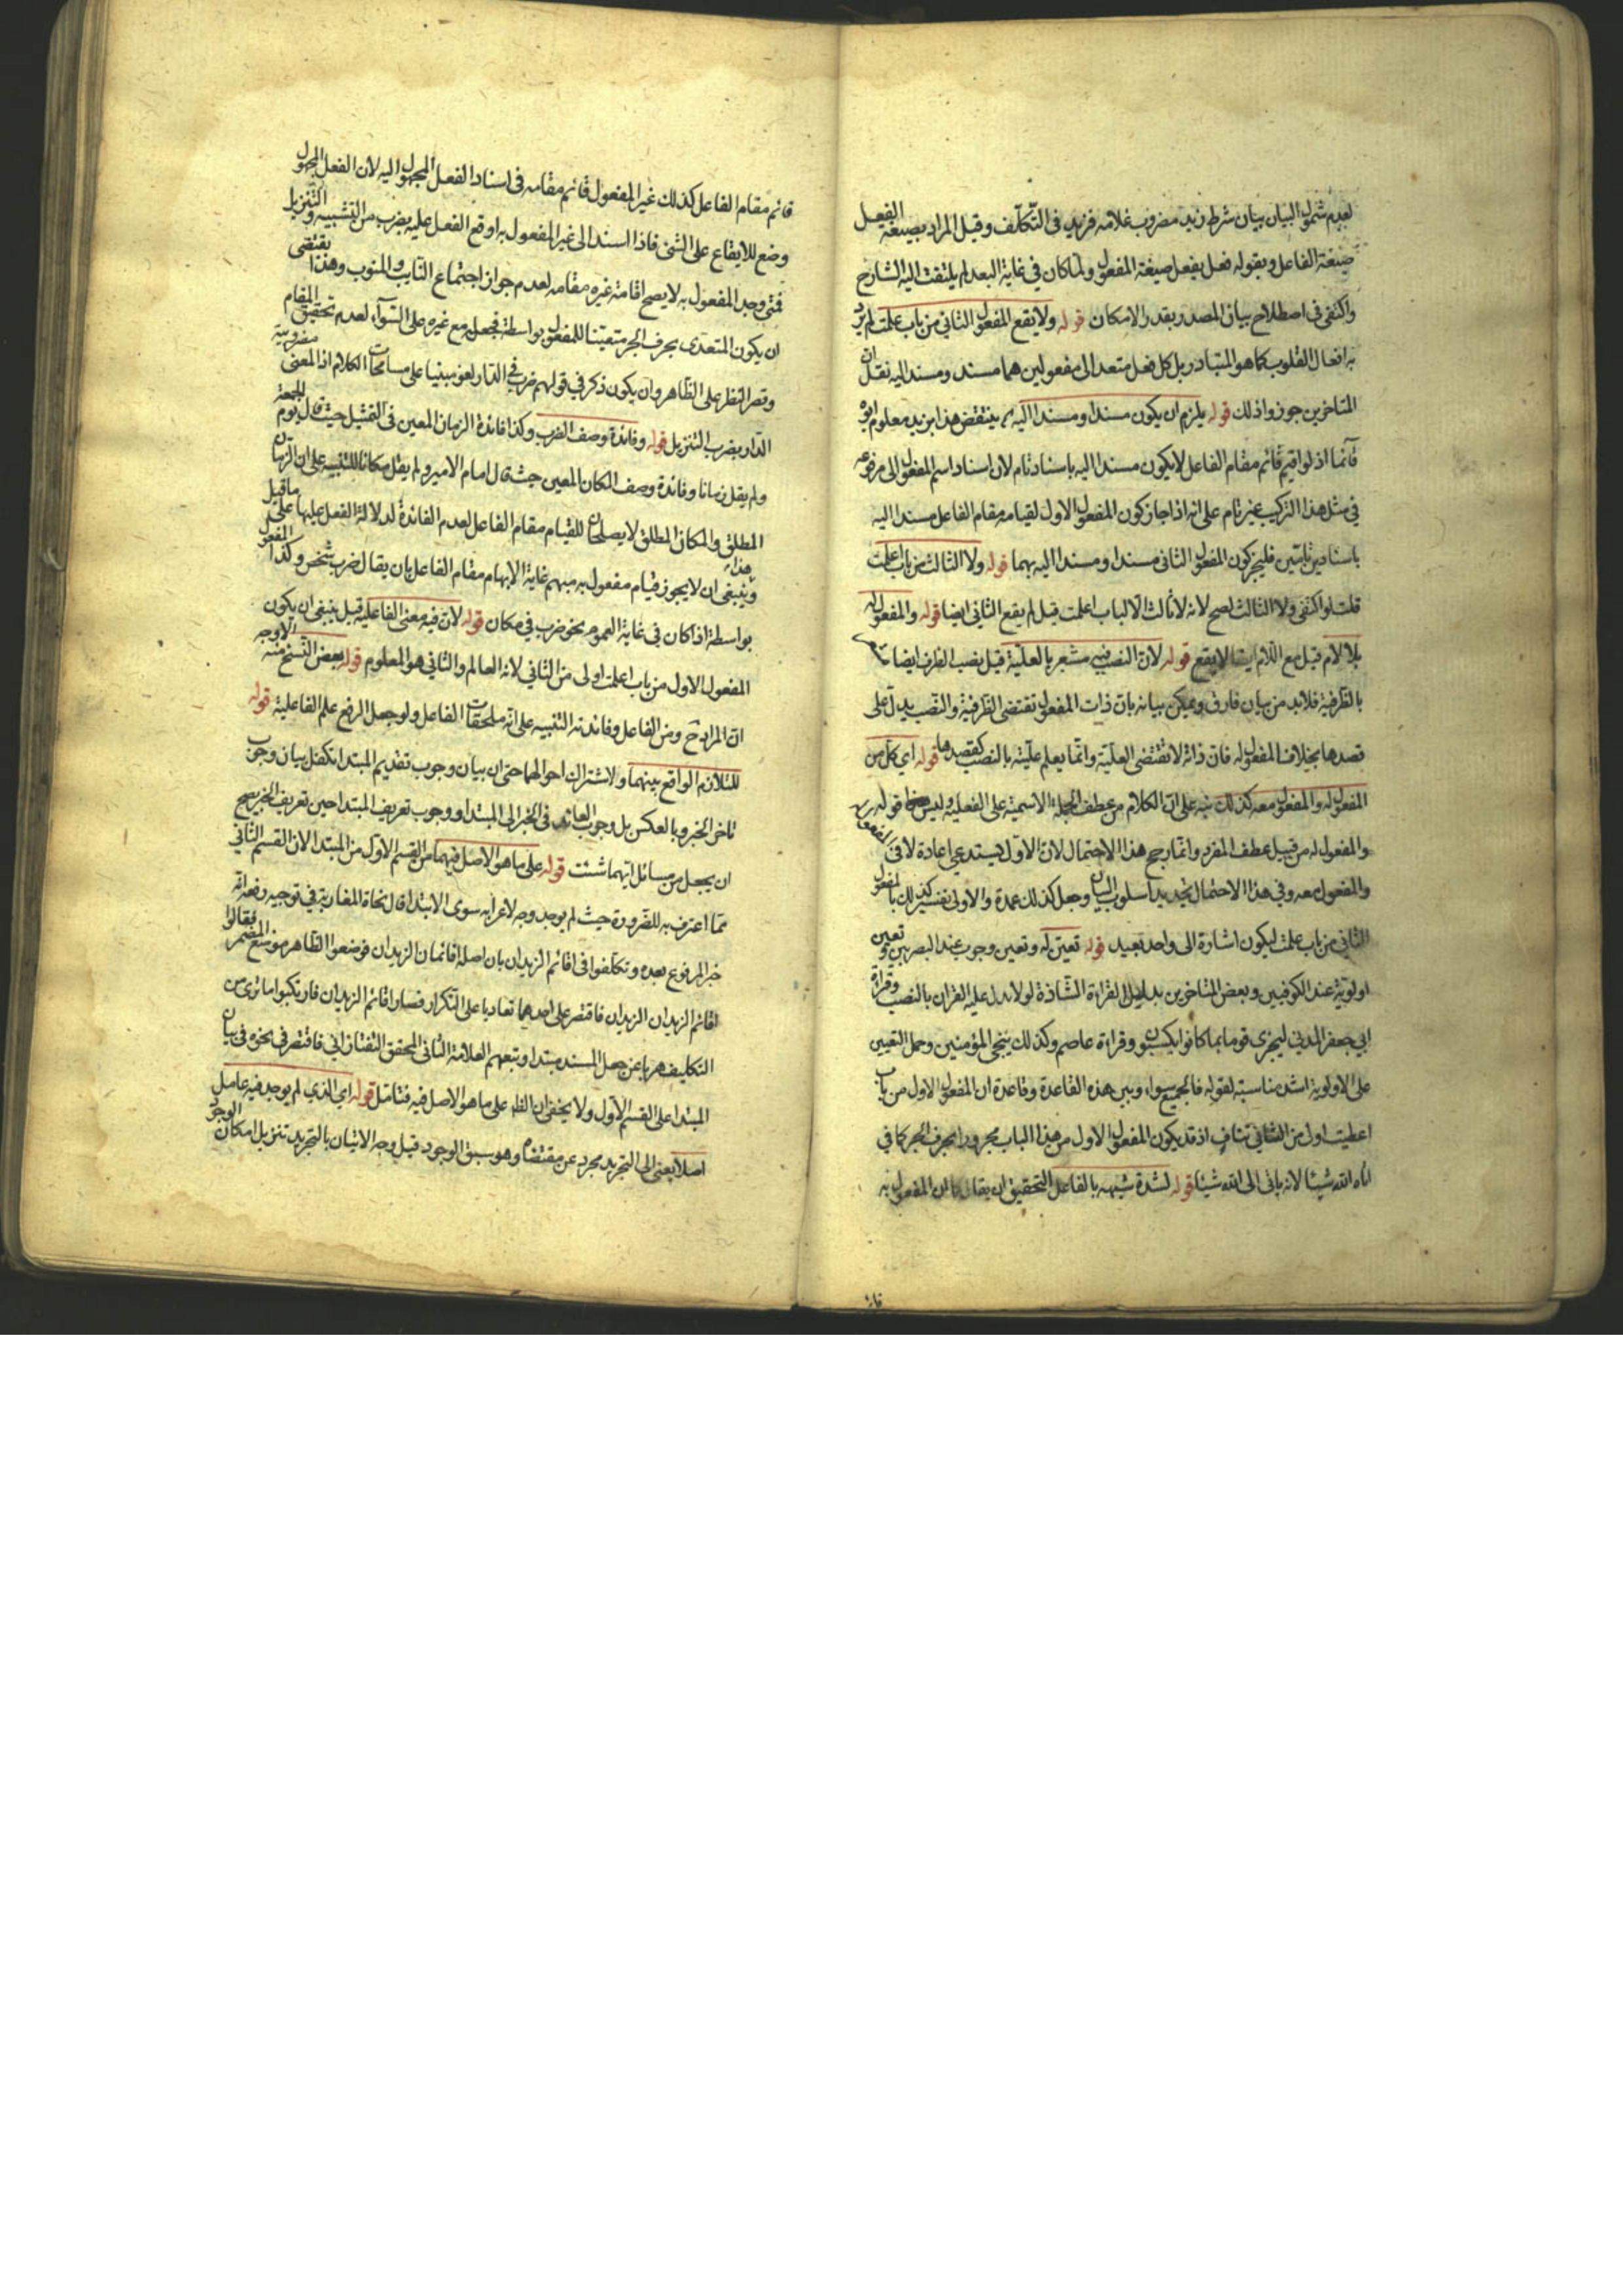 لعدم شمول البيان بيان شرط زيد مضروب غلامه فزيد في التكلف وقيل المراد بصيغة الفعل
صيغة الفاعل وبقوله فعل يفعل صيغة المفعول ولما كان في غاية البعد لم يلتفت اليه الشارح
واكتفى في اصطلاح بيان المصدر بقدر الامكان قوله ولا يقع المفعول الثاني من باب علمت لم يرد
به افعال القلوب كما هو المتبادر بل كل فعل متعد الى مفعولين هما مسند ومسند اليه نقل ان
المتاخرين جوزوا ذلك قوله يلزم ان يكون مسندا ومسندا اليه ينتقض هذا بزيد معلوم ابوه
قائما اذ لو اقيم قائم مقام الفاعل لا يكون مسندا اليه باسناد تام لان اسناد اسم المفعول الى مرفوعه
في مثل هذا التركيب غير تام على انه اذا جاز كون المفعول الاول لقيامه مقام الفاعل مسندا اليه
باسنادين تامين فليجز كون المفعول الثاني مسندا ومسندا اليه بهما قوله ولا الثالث من باب اعلمت
قلت لو اكتفى ولا الثالث لصح لانه لا ثالث الا لباب اعلمت قيل لم يقع الثاني ايضا قوله والمفعول له
بلا لام قيل مع اللام ايضا لا يقع قوله لان النصب فيه مشعر بالعلية قيل نصب الظرف ايضا
بالظرفية فلابد من بيان فارق ويمكن بيانه بان ذات المفعول تقتضي الظرفية والنصب يدل على
قصدها بخلاف المفعول له فان ذاته لا تقتضي العلية وانما يعلم عليته بالنصب كقصدها قوله اي كل من
المفعول له والمفعول معه كذلك نبه على ان الكلام من عطف الجملة الاسمية على الفعلية وليس قوله
والمفعول له من قبيل عطف المفرد وانما رجح هذا الاحتمال لان الاول يستدعي اعادة لا في
والمفعول معه وفي هذا الاحتمال تجديد اسلوب البيان وجعل كذلك عمدة والاولى تفسير كذلك بالمفعول
الثاني من باب علمت ليكون اشارة الى واحد بعيد قوله تعين له وتعين وجوب عند البصريين وتعين
اولوية عند الكوفيين وبعض المتاخرين بدليل القراءة الشاذة لولا نزل عليه القران بالنصب وقراءة
ابي جعفر المدني ليجزى قوما بما كانوا يكسبون وقراءة عاصم وكذلك ينجي المؤمنين وحمل التعيين
على الاولوية اشد مناسبة لقوله فالجميع سواء وبين هذه القاعدة وقاعدة ان المفعول الاول من باب
اعطيت اولى من الثاني تناف اذ قد يكون المفعول الاول من هذا الباب مجرورا بحرف الجر كما في
اتاه الله شيئا لانه باتى الى الله شيئا قوله لشدة شبهه بالفاعل التحقيق ان يقال كما ان المفعول به
قائم مقام الفاعل كذلك غير المفعول قائم مقامه في اسناد الفعل المجهول اليه لان الفعل المجهول
وضع للايقاع على الشئ فاذا اسند الى غير المفعول به اوقع الفعل عليه بضرب من التشبيه والتنزيل
فمتى وجد المفعول به لا يصح اقامة غيره مقامه لعدم جواز اجتماع النايب والمنوب وهذا يقتضي
ان يكون المتعدى بحرف الجر متعينا للمفعول بواسطة فجعل مع غيره على السواء لعدم تحقيق المقام
وقصر النظر على الظاهر وان يكون ذكر في قولهم ضرب في الدار لغو مبنيا على مسامحات الكلام اذ المعنى مضروبية
الدار بضرب التنزيل قوله وفائدة وصف الضرب وكذا فائدة الزمان المعين في التمثيل حيث قال يوم الجمعة
ولم يقل زمانا وفائدة وصف المكان المعين حيث قال امام الامير ولم يقل مكانا للتنبيه على ان الزمان
المطلق والمكان المطلق لا يصلحان للقيام مقام الفاعل لعدم الفائدة لدلالة الفعل عليها على ما قيل
وينبغي ان لا يجوز قيام مفعول به مبهم غاية الابهام مقام الفاعل بان يقال ضرب شخص وكذا المفعول
بواسطة اذا كان في غاية العموم نحو ضرب في مكان قوله لان فيه معنى الفاعلية قيل ينبغي ان يكون
المفعول الاول من باب اعلمت اولى من الثاني لانه العالم والثاني هو المعلوم قوله بعض النسخ منه الاوجه
ان المراد ح ومن الفاعل وفائدته التنبيه على انه ملحقات الفاعل ولو جعل الرفع علم الفاعلية قوله
للتلازم الواقع بينهما ولاشتراك احوالهما حتى ان بيان وجوب تقديم المبتدا تكفل بيان وجوب
تاخر الخبر وبالعكس بل وجوب العائد في الخبر الى المبتدا ووجوب تعريف المبتدا حين تعريف الخبر يصح
ان يجعل من مسائل ايهما شئت قوله على ما هو الاصل فيهما من القسم الاول من المبتدا لان القسم الثاني
مما اعترف به للضرورة حيث لم يوجد وجه لاعرابه سوى الابتدا قال نحاة المغاربة في توجيه رفعه انه
خبر المرفوع بعده وتكلفوا في اقائم الزيدان بان اصله اقائمان الزيدان فوضعوا الظاهر موضع المضمر فقالوا
اقائم الزيدان الزيدان فاقتصر على احدهما تعاديا على التكرار فصار اقائم الزيدان فارتكبوا ما ترى من
التكاليف هربا عن جعل المسند مبتدا وتبعهم العلامة الثاني المحقق التفتازاني فاقتصر في نحوه في بيان
المبتدا على القسم الاول ولا يخفى ان الظ على ما هو الاصل فيه فتامل قوله اي الذي لم يوجد فيه عامل
اصلا يعنى الى التجريد مجرد عن مقتضاه وهو سبق الوجود قيل وجه الاتيان بالتجريد تنزيل امكان الوجود